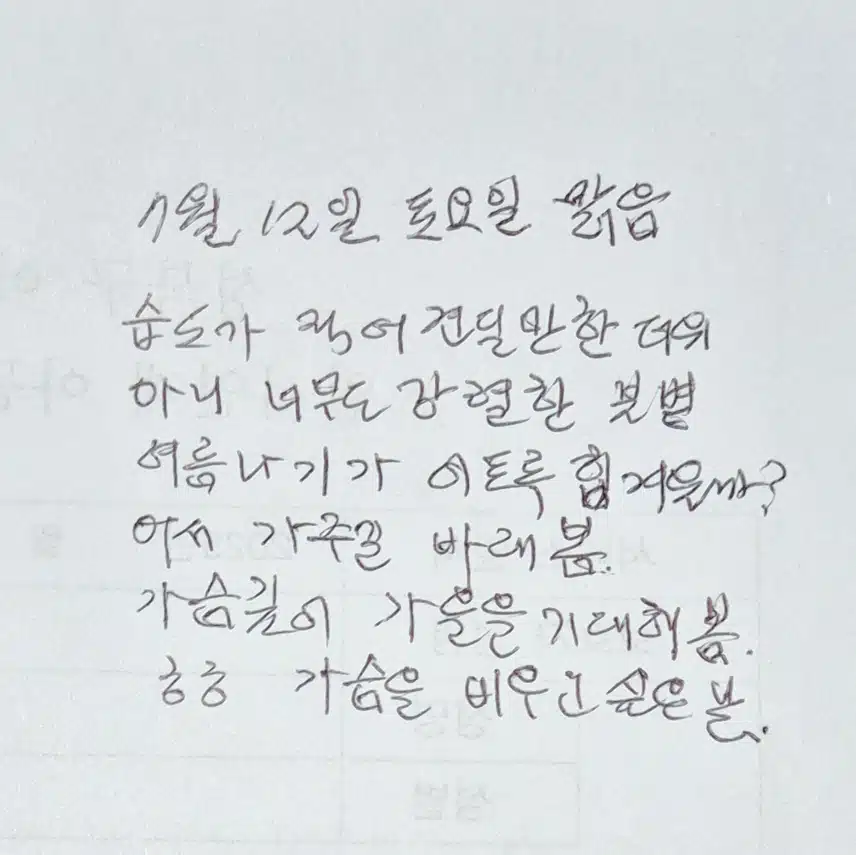 7월 12일 토요일 맑음
습도가 적어 견딜만한 더위
아니 너무도 강렬한 불볕
여름나기가 이토록 힘겨울까?
어서 가주길 바래봄.
가슴깊이 가을을 기대해봄.
가슴을 비우고 싶은 날.